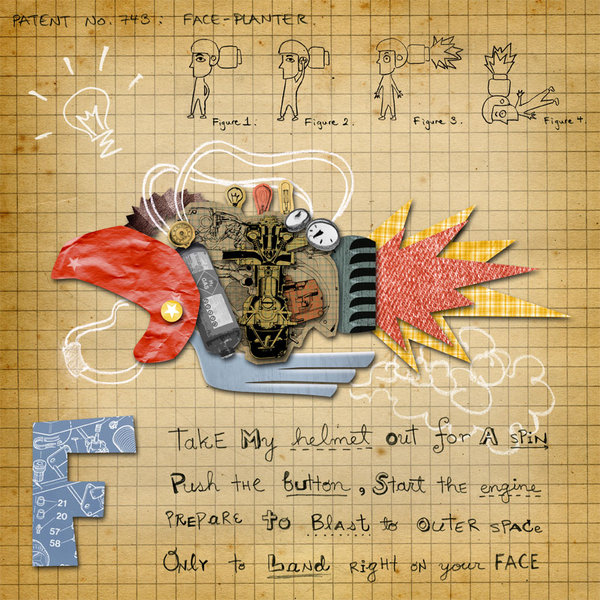 PATENT No. 743: FACE-PLANTER.
Figure 1.
Figure 2.
Figure 3.
Figure 4.
F
21
20
57
58
TAKE My helmet out for A SPIN,
Push THE button, Start the engine
PREPARE to BLAST to OUTER SPACE
ONLY to LAND RIGHT ON your FACE